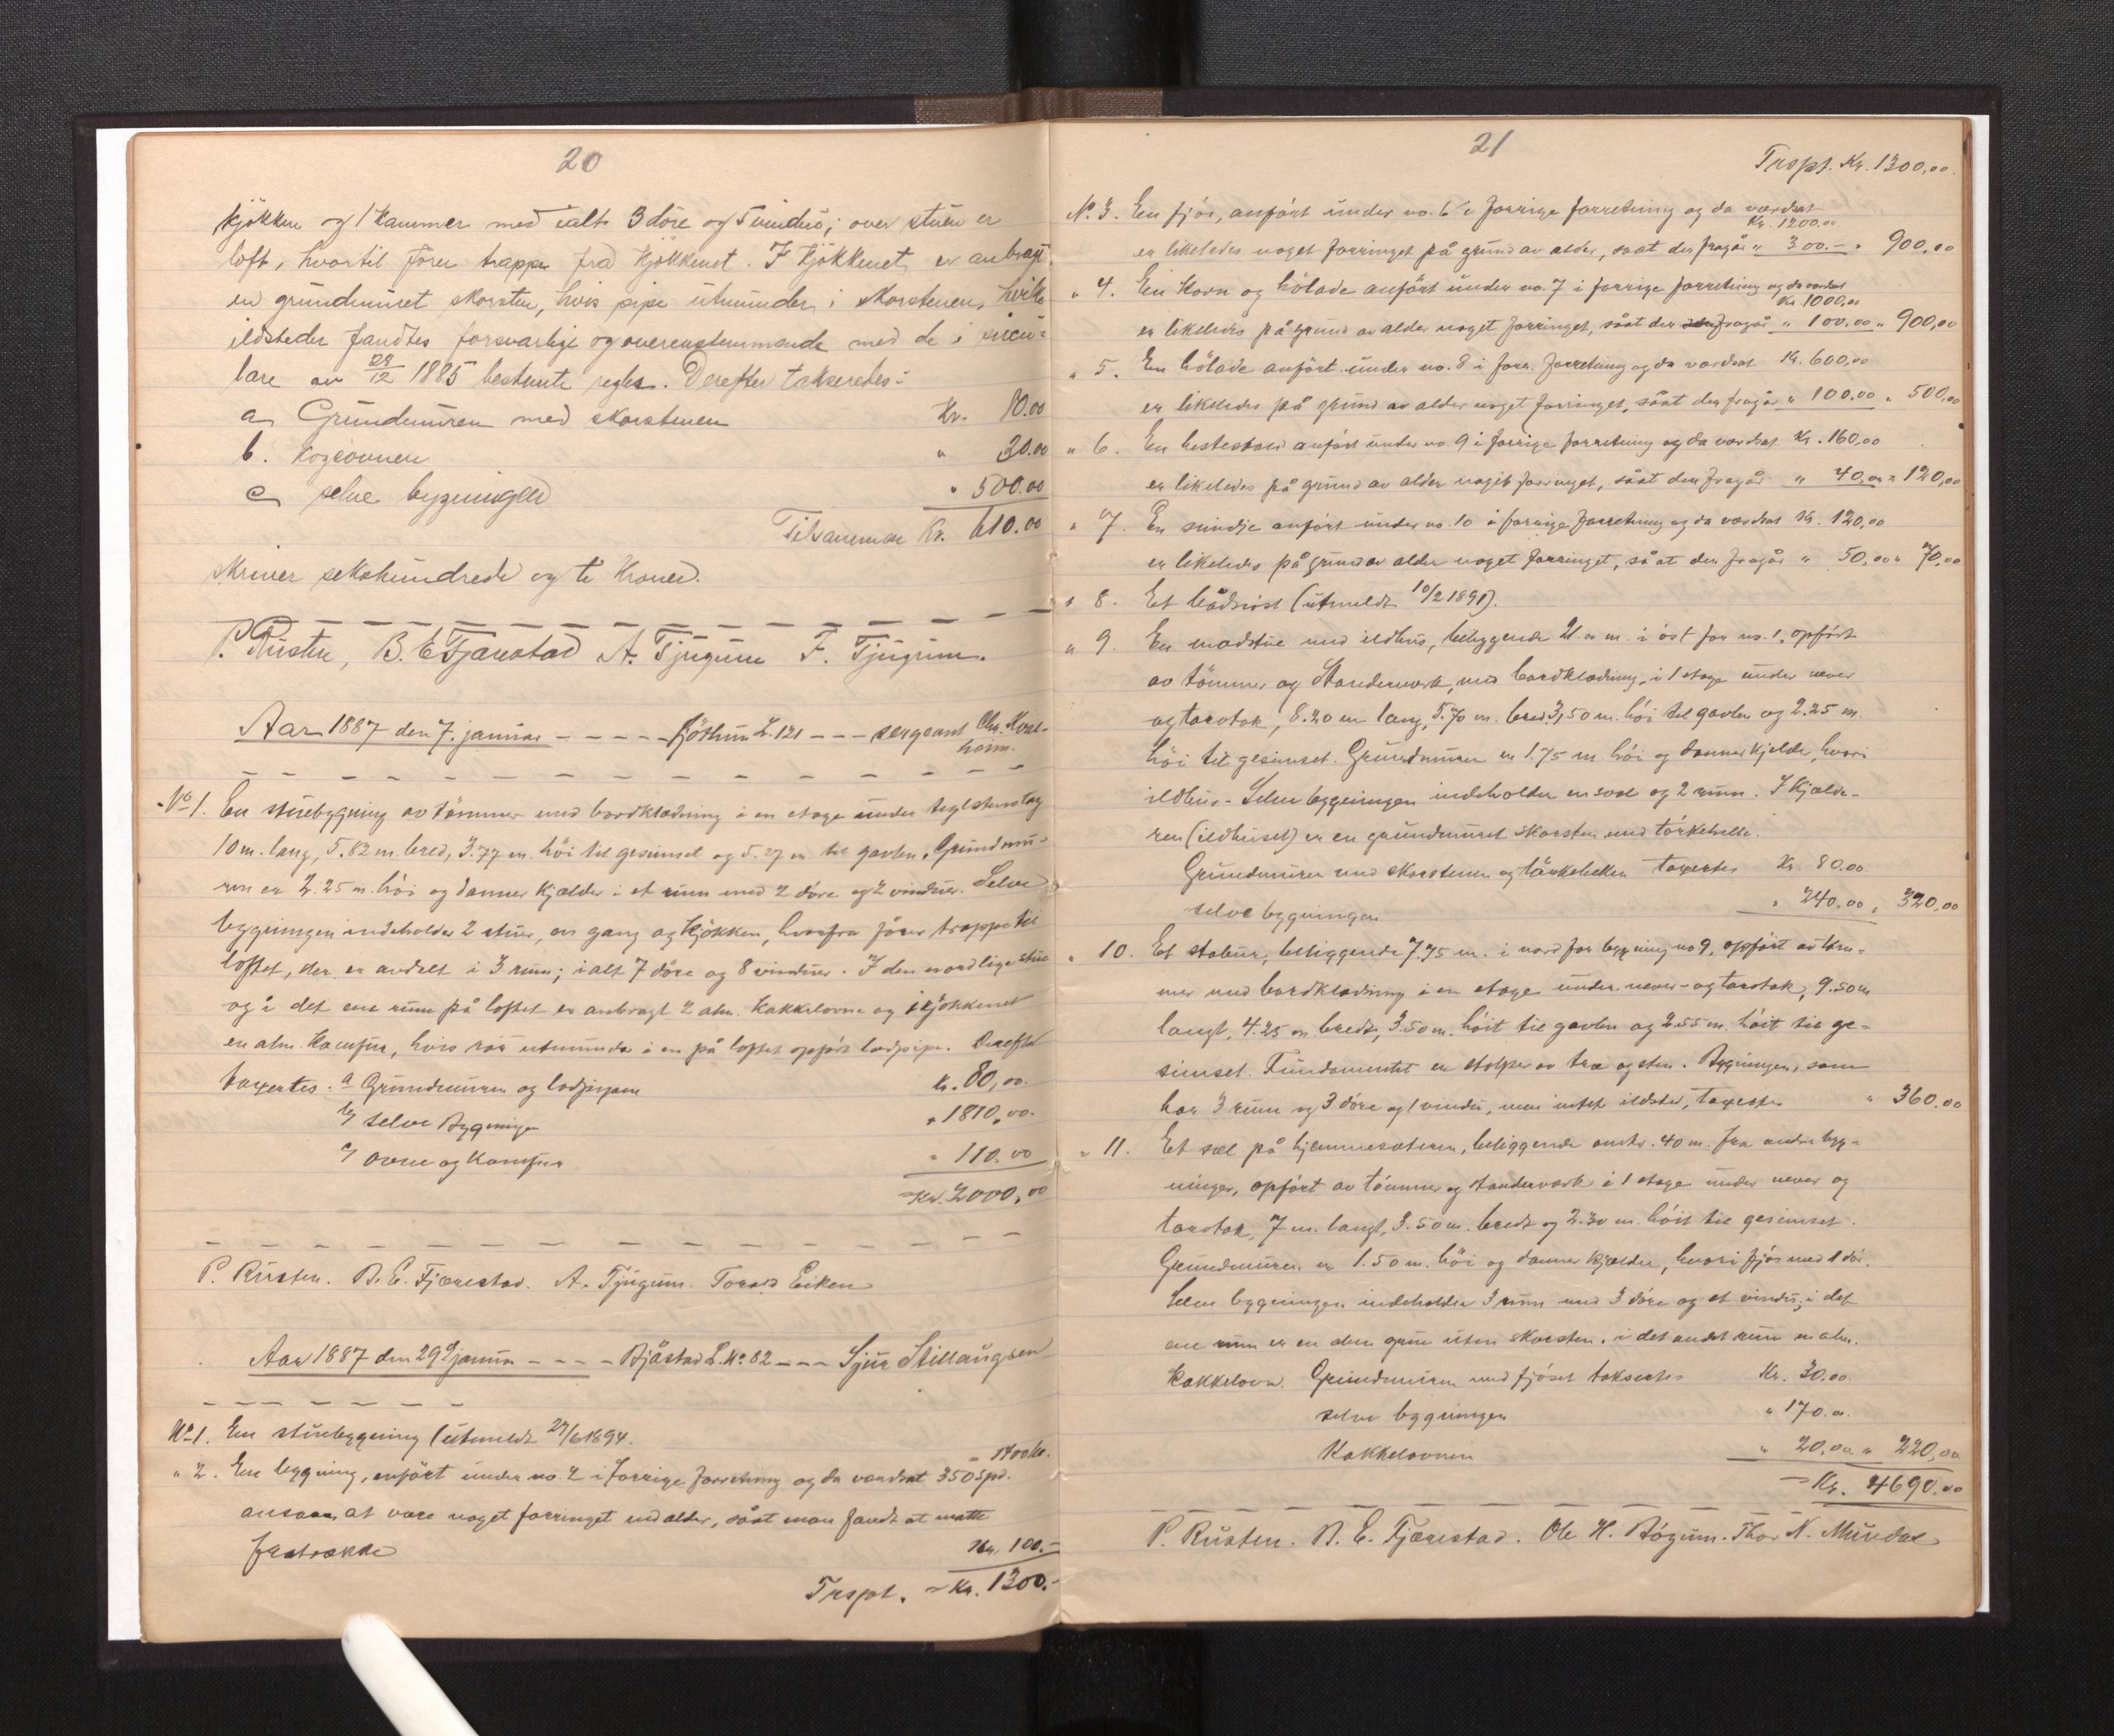 20
kjökken og 1 kammer med ialt 3 döre og 5 vinduer; over stuen er
loft, hvortil förer trappe fra kjökkenet. I kjökkenet er anbragt
en grundmuret skorsten, hvis pipe utmunder i skorstenen, hvilke
ildsteder fandtes forsvarlige og overensstemmende med de i circu-
lare av 24/12 1885 bestemte regler. Derefter takseredes:
a, Grundmuren med skorstenen Kr. 80.00
b. Kogeovnen " 30.00
c, selve bygningen " 500.00
Tilsammen Kr. 610.00
skriver sekshundrede og ti Kroner.
P. Rusten, B. E Fjærestad A. Tjugum F. Tjugum.
Aar 1887 den 7. januar - - - - - Fjöthun L. 121 - - - sergeant Ole Kval-
heim.
No 1. En stuebygning av tömmer med bordklædning i en etage under teglstenstag
10 m. lang, 5.82 m. bred, 3.77 m. höi til gesimset og 5.27 m. til gavlen. Grundmu-
ren er 2.25 m. höi og danner kjælder i et rum med 2 döre og 2 vinduer. Selve
bygningen indeholder 2 stuer, en gang og kjökken, hvorfra förer trappe til
loftet, der er avdelt i 3 rum; ialt 7 döre og 8 vinduer. I den nordlige stue
og i det ene rum på loftet er anbragt 2 alm. kakkelovne og i kjökkenet
en alm. komfur, hvis rör utmunder i en på loftet opfört lodpipe. Derefter
taxertes. a Grundmuren og lodpipen Kr. 80,00.
b/ selve Bygningen " 1810,00.
c/ ovne og komfur " 110.00
= Kr. 2000,00
P. Rusten. B. E. Fjærestad. A. Tjugum. Torald Eiken
Aar 1887 den 29 januar - - - - Bjåstad L. No. 82 - - - Sjur Stillaugsen
No 1. En stuebygning (utmeldt 27/6 1894.
" 2. En bygning, anfört under no. 2 i forrige forretning og da værdsat 350 Spd. = 1400 kr.
ansaaes at være noget forringet ved alder, såat man fandt at måtte
fratrække Kr. 100.-
Trspt. = Kr. 1300.-
21
Trspt. Kr. 1300,00.
No. 3. En fjös, anfört under no. 6 i forrige forretning og da værdsat
Kr. 1200.00
er likeledes noget forringet på grund av alder, saat der fragår " 300.- " 900,00
" 4. En korn og hölade anfört under no. 7 i forrige forretning og da værdsat
Kr. 1000,00
er likeledes på grund av alder noget forringet, såat der fragår " 100.00 " 900,00
" 5. En hölade anfört under no. 8 i forr. forretning og da værdsat Kr. 600,00
er likeledes på grund av alder noget forringet, såat der fragår " 100.00 " 500,00
" 6. En hestestald anfört under no. 9 i forrige forretning og da værdsat Kr. 160,00
er likeledes på grund av alder noget forringet, såat der fragår " 40,00 " 120,00
" 7. En smidje anfört under no. 10 i forrige forretning og da værdsat Kr. 120,00
er likeledes på grund av alder noget forringet, så at der fragår " 50,00 " 70,00
" 8. Et bådnöst (utmeldt 10/2 1891).
" 9. En madstue med ildhus, beliggende 21 m. i öst for no. 1, opfört
av tömmer og Standerverk, med bordklædning, i 1 etage under næver
og torvtak, 8.20 m lang, 5.70 m. bred, 3,50 m. höi til gavlen og 2.25 m.
höi til gesimset. Grundmuren er 1.75 m höi og danner kjelder, hvori
ildhus. Selve bygningen indeholder en sval og 2 rum. I Kjælde-
ren (ildhuset) er en grundmuret skorsten med törkehelle.
Grundmuren med skorstenen og törkehellen taxertes Kr. 80.00
selve bygningen " 240,00 " 320,00
" 10. Et stabur, beliggende 7.75 m. i nord for bygning no 9, opfört av töm-
mer med bordklædning i en etage under never- og torvtak, 9.50 m
langt, 4.25 m bredt, 3.50 m. höit til gavlen og 2.55 m. höit til ge-
simset. Fundamentet er stolper av træ og sten. Bygningen, som
har 3 rum og 3 döre og 1 vindu, men intet ildsted, taxertes " 360.00
" 11. Et sæl på hjemmesæteren, beliggende omtr. 40 m. fra andre byg-
ninger, opfört av tömmer og standerværk i 1 etage under never og
torvtak, 7 m. langt, 3.50 m. bredt og 2.30 m. höit til gesimset.
Grundmuren er 1.50 m. höi og danner kjælder, hvori fjös med 1 dör.
Selve bygningen indeholder 3 rum med 3 döre og et vindu; i det
ene rum er en alm. grue uten skorsten, i det andet rum en alm.
kakkelovn. Grundmuren med fjöset taksertes Kr. 30.00.
selve bygningen " 170.00.
Kakkelovnen " 20,00 " 220,00
= Kr. 4690.00
P. Rusten. B. E. Fjærestad. Ole H. Bögum. Thor N. Mundal